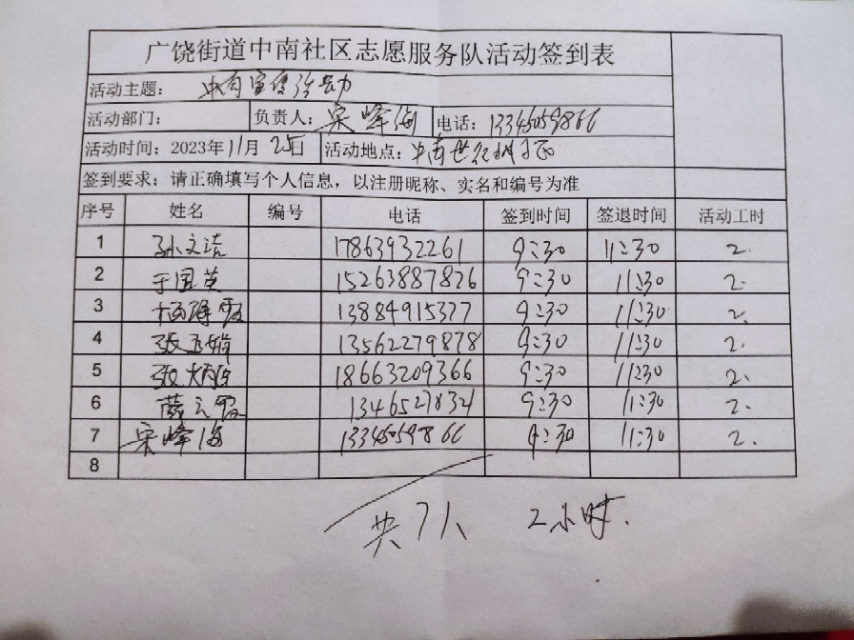 广饶街道中南社区志愿服务队活动签到表
活动主题： 宣传活动
活动部门： 负责人：宋峰海 电话：13345059866
活动时间：2023年11月25日 活动地点：中南世纪城
签到要求：请正确填写个人信息，以注册昵称、实名和编号为准
序号 姓名 编号 电话 签到时间 签退时间 活动工时
1 孙文洁 17863932261 9:30 11:30 2.
2 于国英 15263887826 9:30 11:30 2.
3 13884915377 9:30 11:30 2.
4 张玉娟 13562279878 9:30 11:30 2.
5 张 18663209366 9:30 11:30 2.
6 9:30 11:30 2.
7 宋峰海 13345059866 9:30 11:30 2.
8
共7人 2小时.